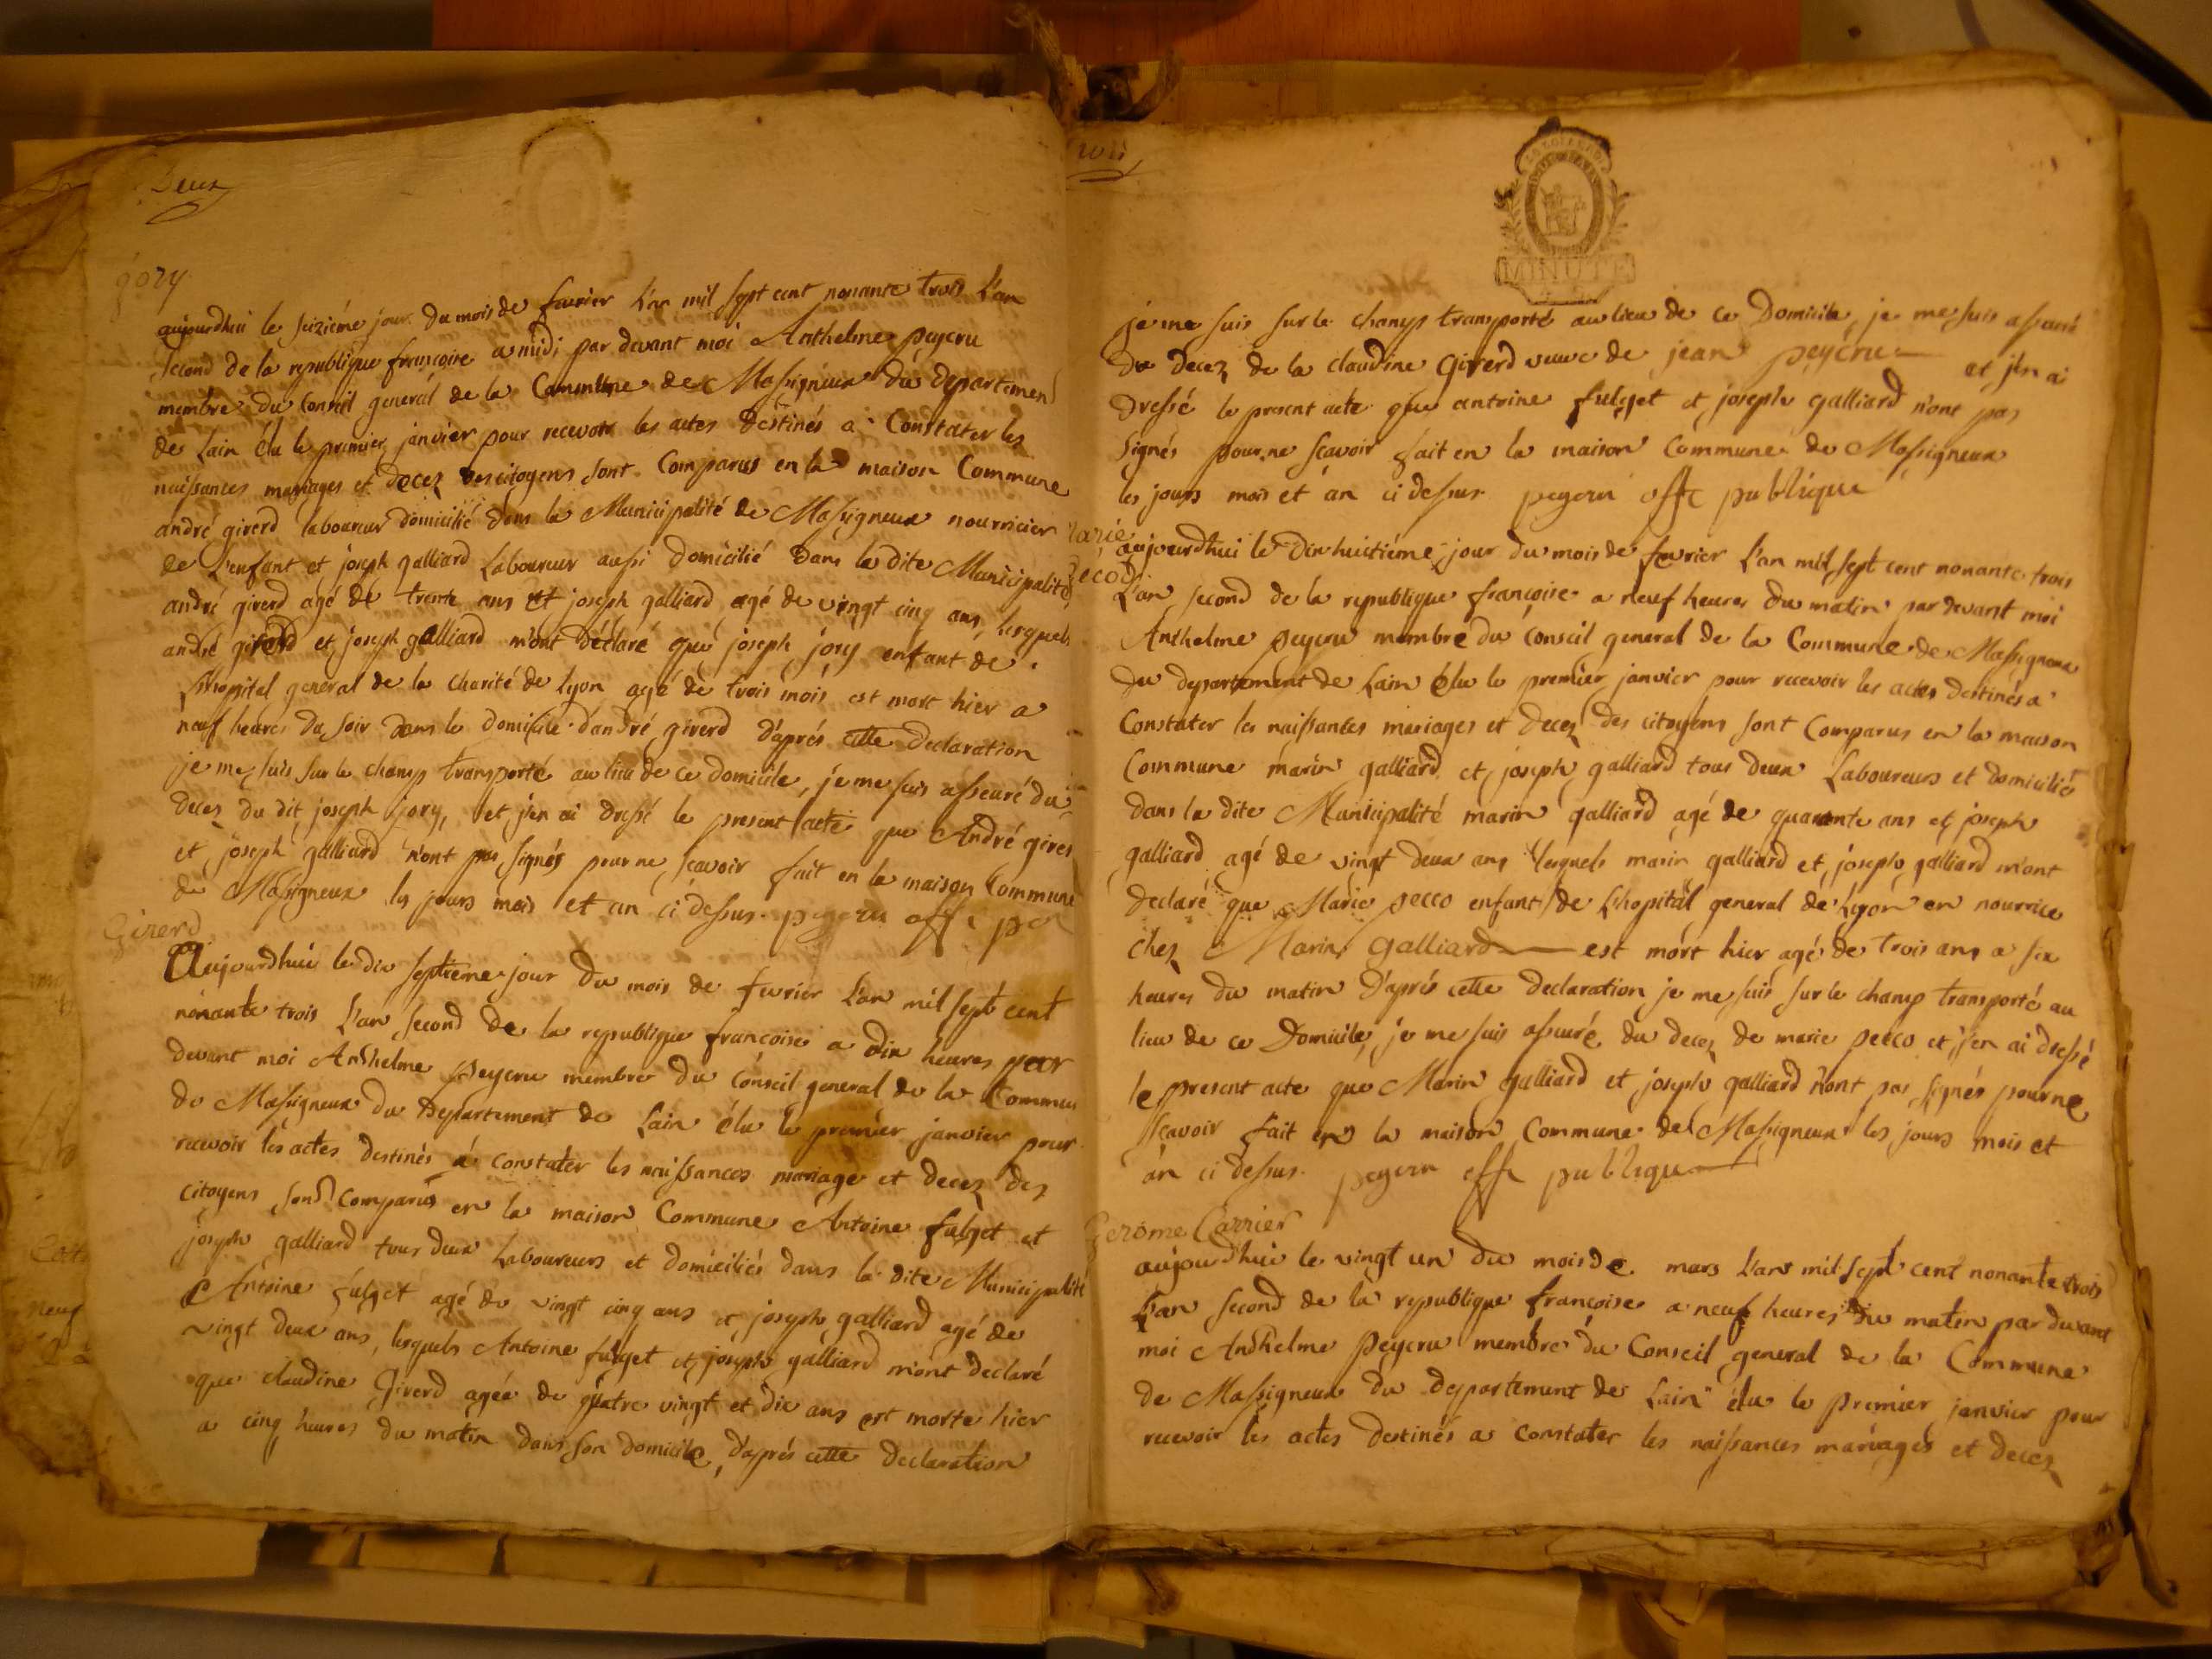 Deux
jory
aujourdhui le seizième jour du mois de fevrier l'an mil sept cent nonante trois l'an
second de la republique françoise a midi par devant moi Anthelme peycru
membre du Conseil general de la Commune de Massigneux du departement
de Lain élu le premier janvier pour recevoir les actes destinés a Constater les
naissances mariages et decez des citoyens sont Comparus en la maison Commune
andré girerd laboureur domicilié dans la Municipalité de Massigneux nourricier
de L'enfant et joseph galliard Laboureur aussi domicilié dans la dite Municipalité
andré girerd agé de trente ans et joseph galliard agé de vingt cinq ans, lesquels
andré girerd et joseph galliard m'ont déclaré que joseph jory enfant de
L'hopital general de la charité de Lyon agé de trois mois est mort hier a
neuf heures du soir dans le domicile d'andré girerd d'aprés cette declaration
je me suis sur le champ transporté au lieu de ce domicile, je me suis asseuré du
decez du dit joseph jory, et j'en ai dressé le present acte que André girer
et joseph galliard n'ont pas signés pour ne sçavoir fait en la maison Commune
de Massigneux les jours mois et an ci dessus. peycru offi
Girerd
Aujourdhui le dix septieme jour du mois de fevrier L'an mil sept cent
nonante trois L'an second de la republique francoise a dix heures par
devant moi Anthelme peycru membre du conseil general de la Commun
de Massigneux du Departement de Lain élu le premier janvier pour
recevoir les actes destinés á constater les naissances mariage et decez des
citoyens sont comparus en la maison Commune Antoine fulget et
joseph galliard tous deux Laboureurs et domiciliés dans la dite Municipalité
Antoine fulget agé de vingt cinq ans et joseph galliard agé de
vingt deux ans, lesquels Antoine fulget et joseph galliard m'ont declaré
que claudine Girerd agée de quatre vingt et dix ans est morte hier
a cinq heures du matin dans son domicile, d'aprés cette declaration
je me suis sur le champ transporté au lieu de ce Domicile, je me suis asseuré
du decez de la claudine Girerd veuve de jean peycru et j'en ai
dressé le present acte que antoine fulget et joseph galliard n'ont pas
signés pour ne sçavoir fait en la maison Commune de Massigneux
les jours mois et an ci dessus. peycru offi publique
Marie
pecco
aujourdhui le dixhuitiéme jour du mois de fevrier L'an mil sept cent nonante trois
L'an second de la republique françoise a neuf heures du matin par devant moi
Anthelme peycru membre du conseil general de la Commune de Massigneux
du departement de Lain élu le premier janvier pour recevoir les actes destinés a
Constater les naissances mariages et decez des citoyens sont Comparus en la maison
Commune marin galliard et joseph galliard tous deux Laboureurs et domicilié
dans la dite Municipalité marin galliard agé de quarante ans et joseph
galliard agé de vingt deux ans lesquels marin galliard et joseph galliard m'ont
declaré que Marie pecco enfant de L'hopital general de Lyon en nourrice
chez Marin galliard est mort hier agé de trois ans a six
heures du matin d'aprés cette declaration je me suis sur le champ transporté au
lieu de ce Domicile, je me suis asseuré du decez de marie pecco et j'en ai dressé
le present acte que Marin galliard et joseph galliard n'ont pas signés pour ne
sçavoir fait en la maison Commune de Massigneux les jours mois et
an ci dessus. peycru offi publique
Gerome Carrier
aujourdhui le vingt un du mois de mars L'an mil sept cent nonante trois
L'an second de la republique françoise a neuf heures du matin par devant
moi Anthelme peycru membre du Conseil general de la Commune
de Massigneux du departement de Lain élu le premier janvier pour
recevoir les actes destinés a constater les naissances mariages et decez
MINUTE